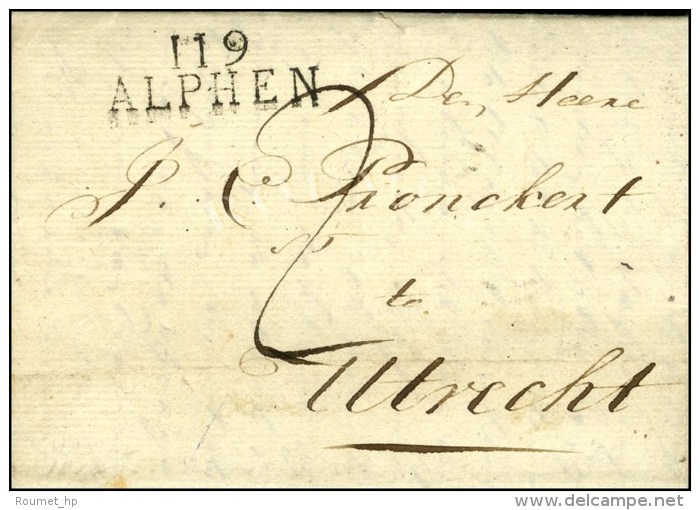 119
ALPHEN
Den Heere
P. C. Pronckert
2
te
Utrecht
Roumet_hp
www.delcampe.net